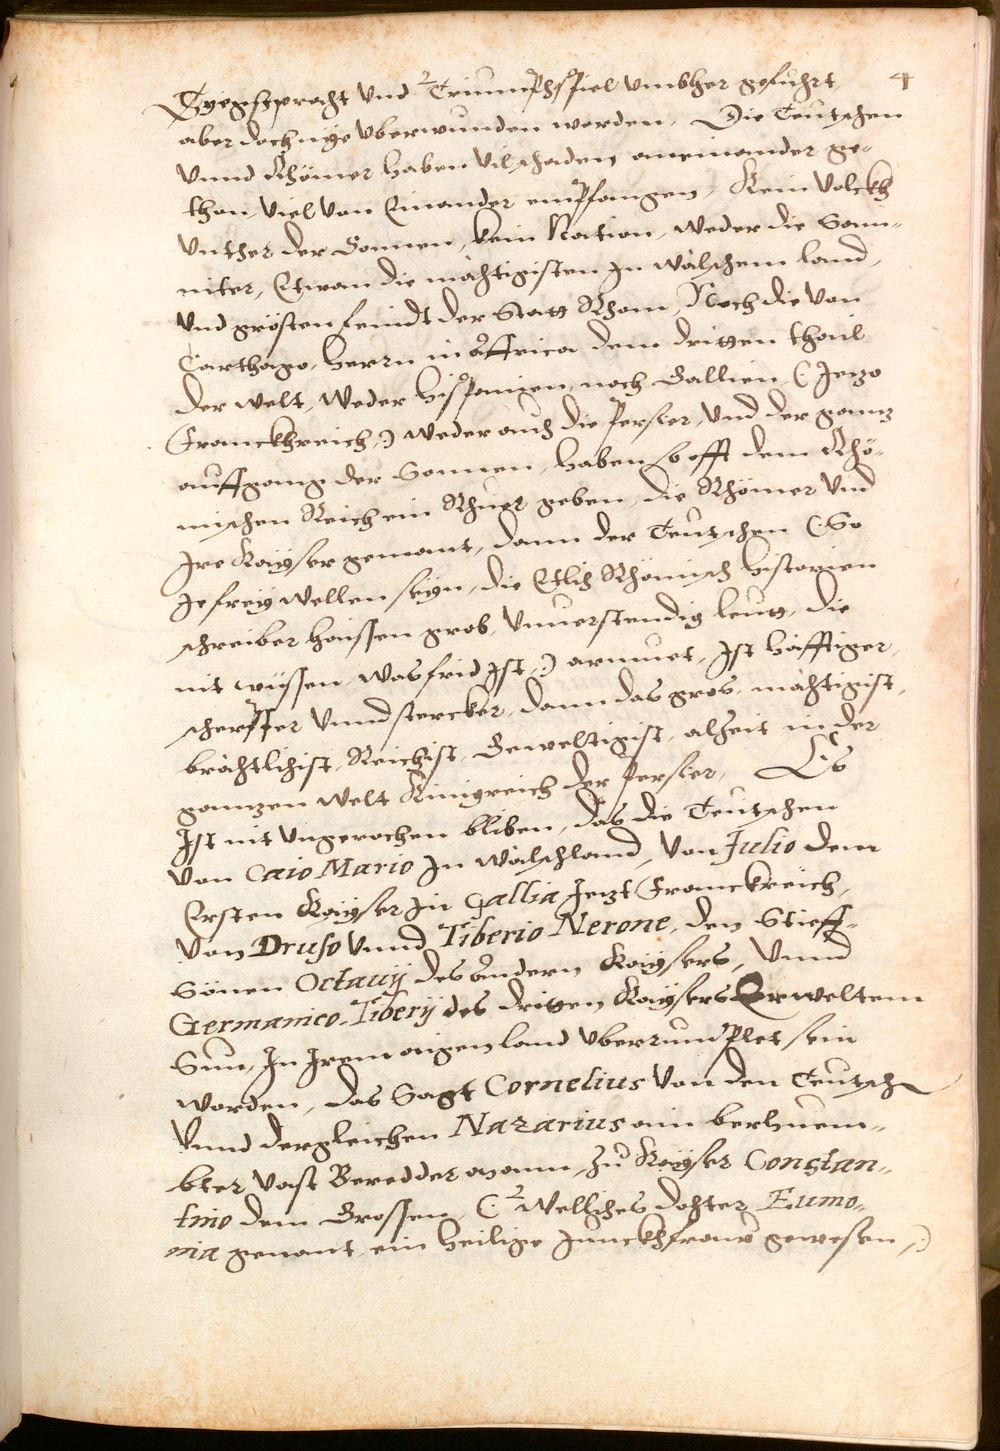 4
Sygespracht Vnd Triumphspiel vmbher gefuhrt,
aber doch nye vberwunden worden. Die Teutschen
Vnnd Rhömer haben vil schaden aneinander ge-
than, viel von Einander empfangen, Kein Volckh
Vnther der Sonnen, kein Nation, weder die Sam-
niter, Etwan die mächtigisten in wälschem land,
Vnd grösten feindt der Statt Rhom, Noch die von
Carthago, herrn in Affrica dem dritten thail
der welt, weder hispanien, noch Gallien, (: Jetzo
Franckhreich,:) weder auch die Persier, Vnd der gantz
auffgang der Sonnen, haben so offt dem Rhö-
mischen Reich ein Rhuet geben, die Rhömer Vnd
Ire Kayser gemant, dann der Teutschen (: So
Je frey wellen seyn, die Etlich Rhömisch historien
schreiber haissen grob, Vnuerstendig leutt, die
nit wissen, was frid ist,:) armuet, Ist häfftiger,
scherpffer Vnnd stercker, dann das gros, mächtigist,
brächtlichist, Reichist, Geweltigist, alzeit in der
gantzen welt Kinigreich der Persier, Es
Ist nit Vngerochen bliben, das die Teutschen
Von Caio Mario In wälschland, Von Julio dem
Ersten Kayser In Gallia Jetzt Franckreich,
Von Druso Vnnd Tiberio Nerone, den Stieff-
Sönen Octauij des Andern Kaysers, Vnnd
Germanico, Tiberij des dritten Kaysers Erweltem
Sun, In Irem aigen land vberrumplet sein
worden, das Sagt Cornelius Von den Teutsch
Vnnd dergleichen Nazarius ain berhuem-
bter Vast Beredder mann, Zu Kayser Constan-
tino dem Grossen, (: Welliches dochter Eumo-
nia genant, ein heilige Junckhfraw gewesen,:)